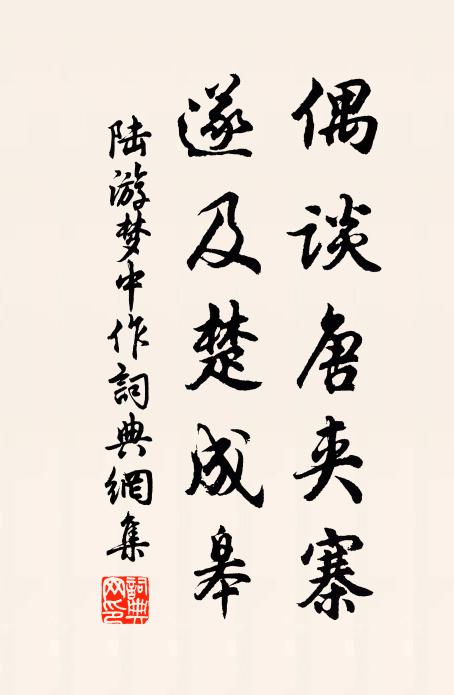 偶谈唐夹寨
遂及楚成皋
陆游梦中作詞典網集
詞典网印